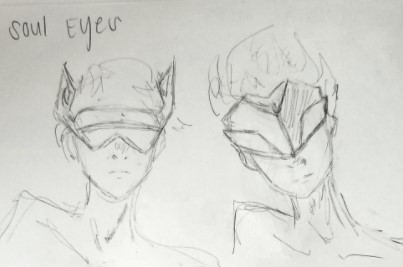 soul Eyes